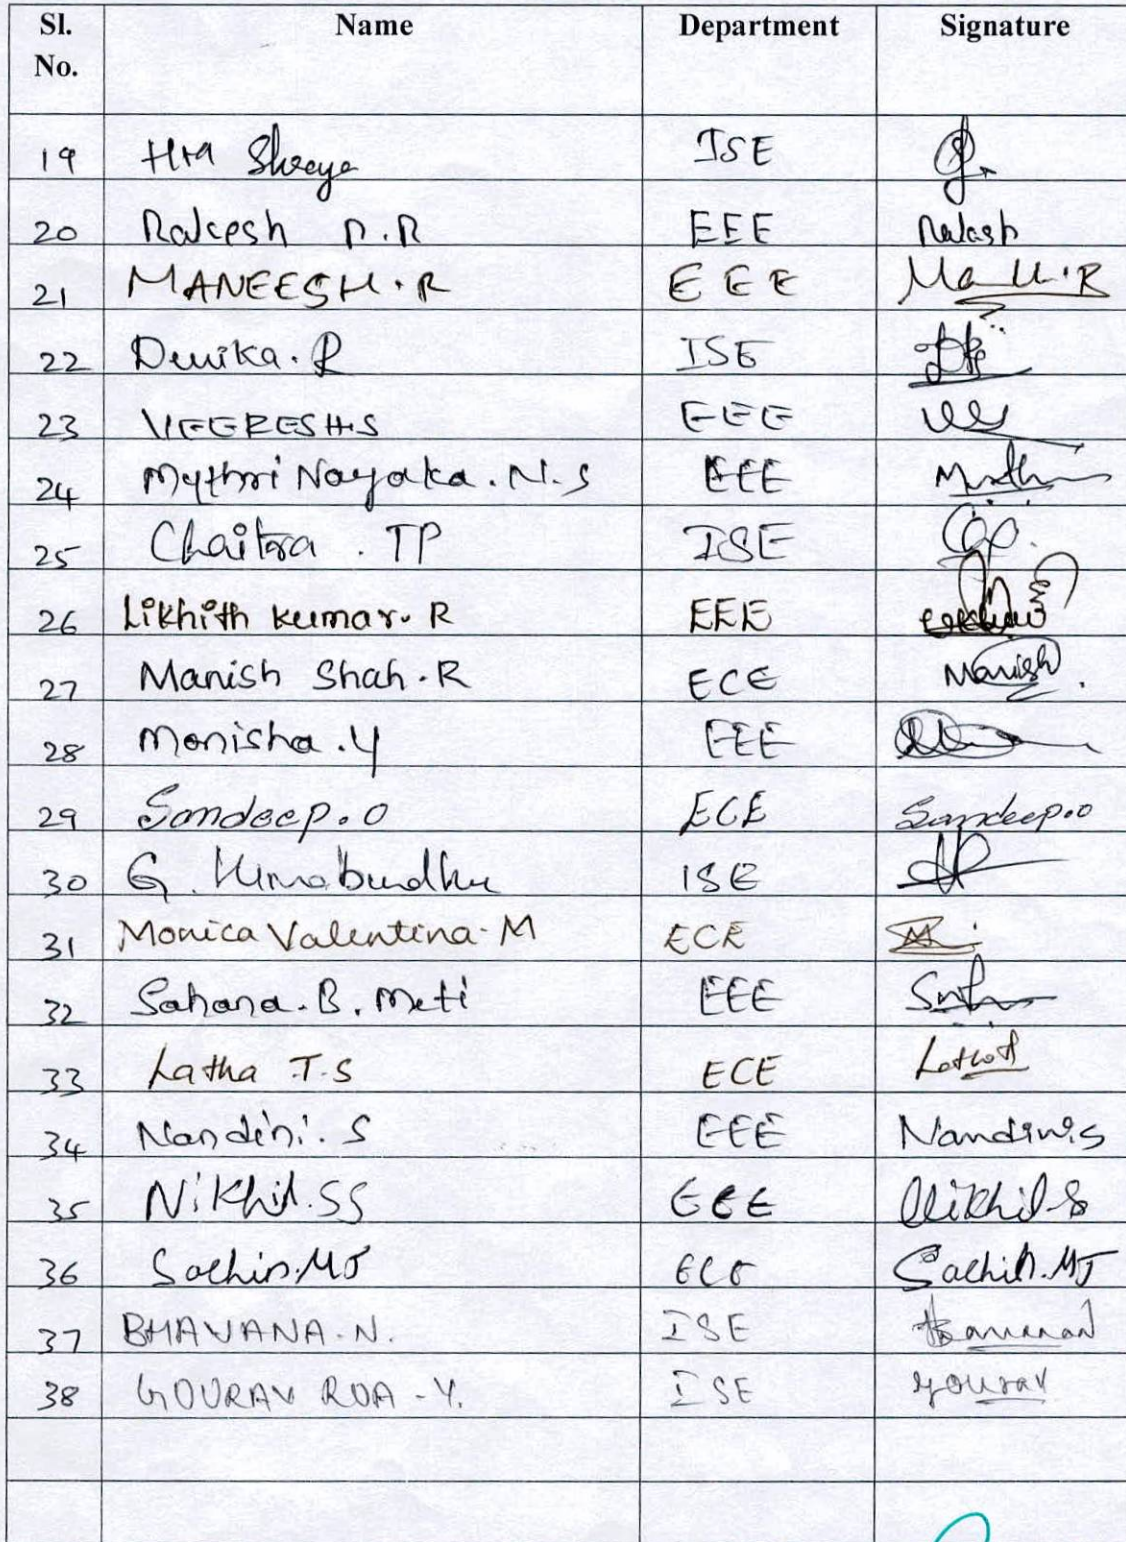 Sl. No. Name Department Signature
19 Shreya ISE
20 Rakesh n.R EEE Rakesh
21 MANEESH.R EEE
22 R ISE
23 VEERESH.S EEE
24 Mythri Nayaka.N.S EEE
25 Chaitra . TP ISE
26 Likhith kumar. R EEE
27 Manish Shah.R ECE Manish
28 Monisha.Y EEE
29 Sandeep.O ECE Sandeep.O
30 G. ISE
31 Monica Valentina.M ECE
32 Sahana.B.Meti EEE
33 Latha T.S ECE
34 Nandini.S EEE Nandini.S
35 Nikhil.SS EEE Nikhil.S
36 Sachin.MJ ECE Sachin.MJ
37 BHAVANA.N. ISE
38 GOURAV ROA-Y. ISE gourav